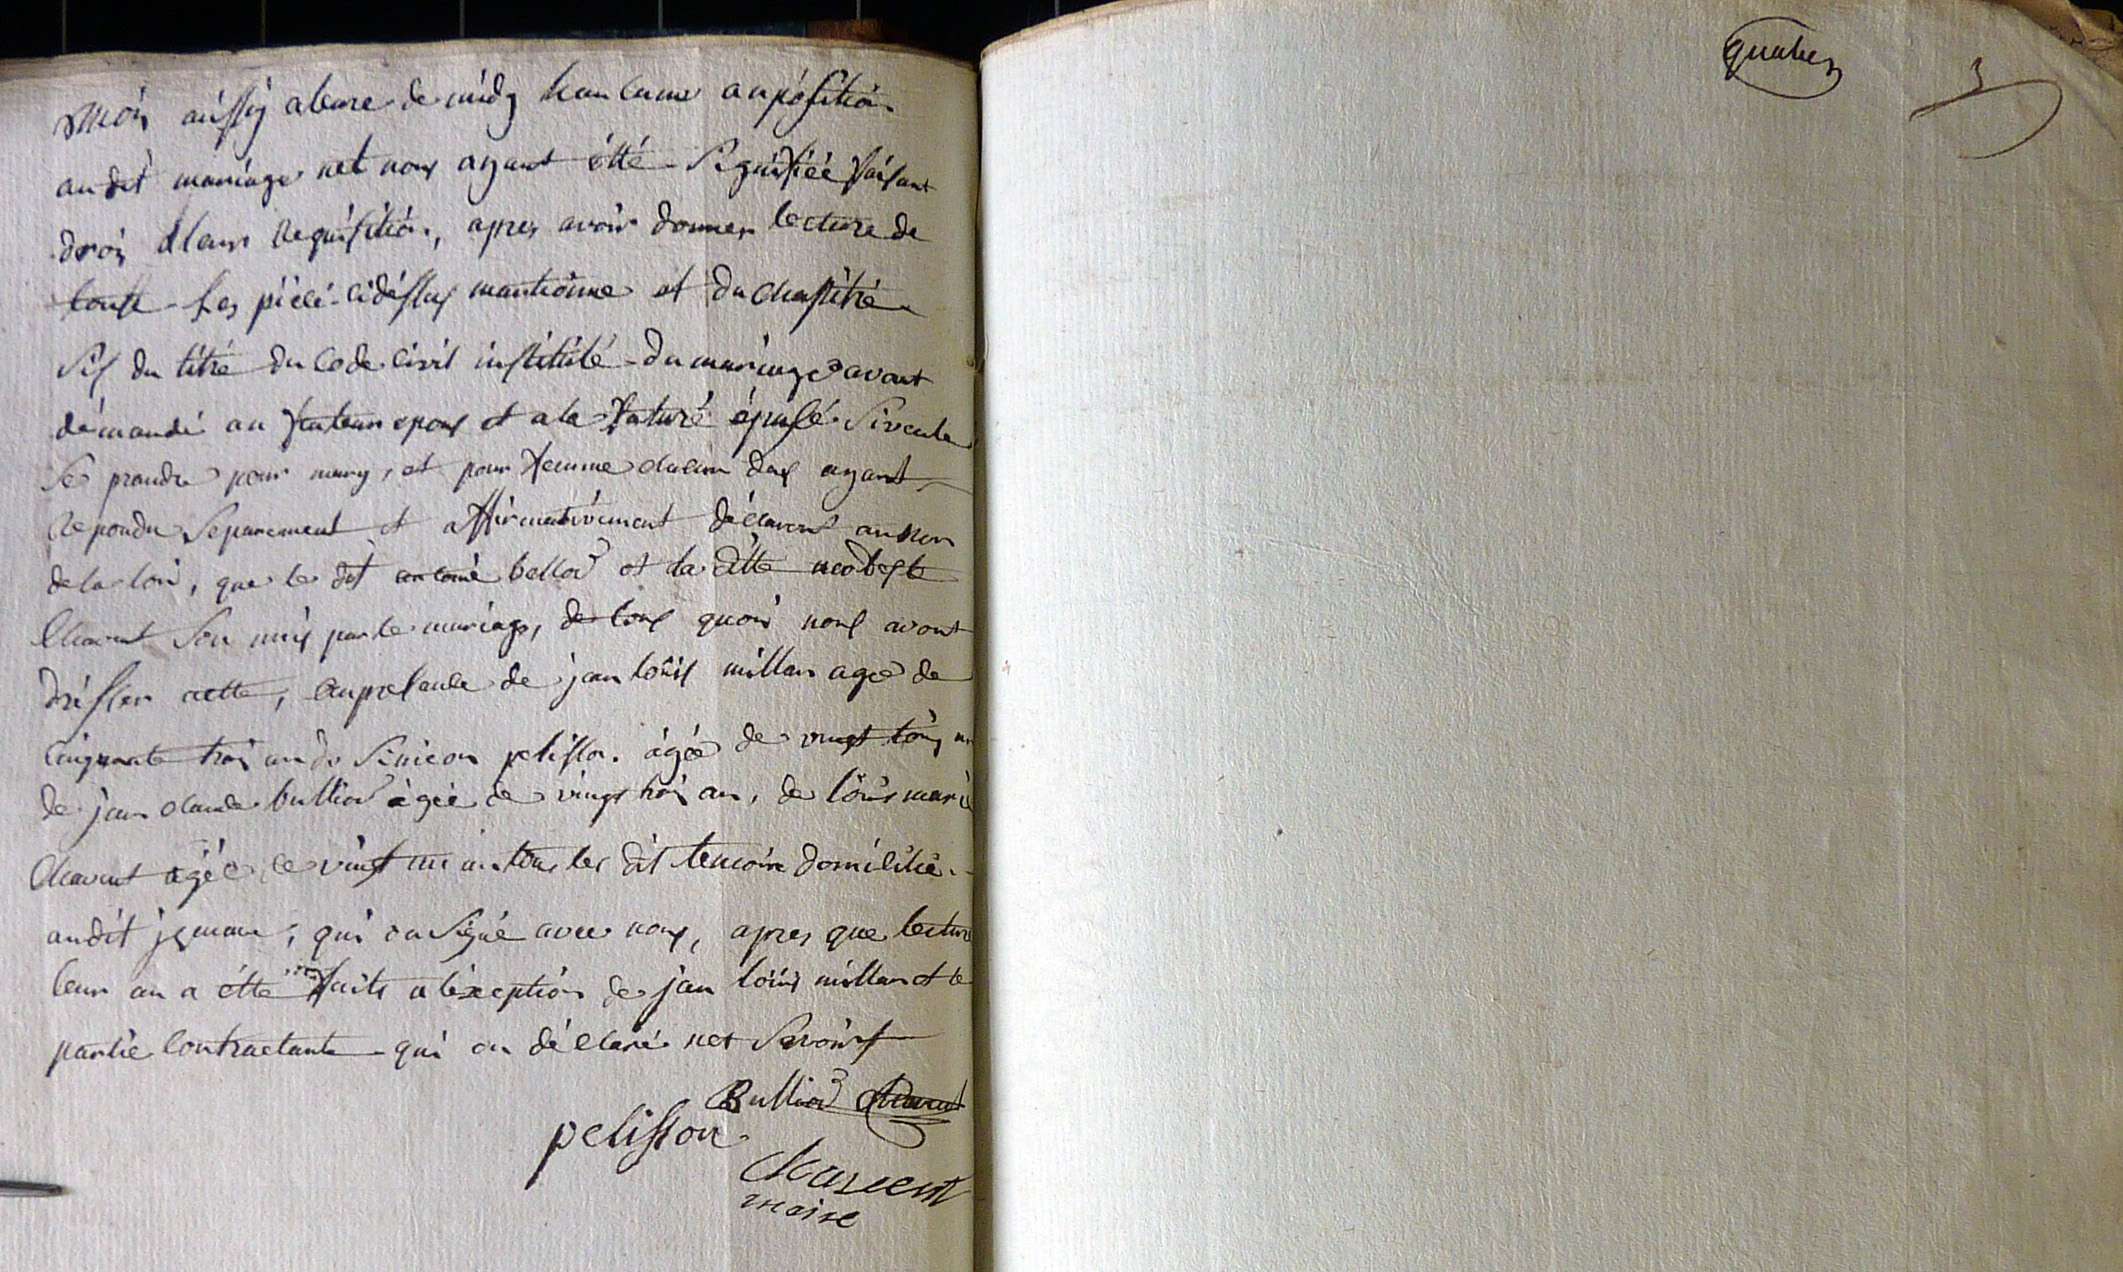 mois aussy aleure de midy haucune auposition
audit mariage net nous ayant étté Signifiéé faisant
drois aleur Requisition, apres avoir donner lecture de
toute les piéce cidessus mantionne et du chapitre
sis du titré du Code Civil institulé du mariage avont
démandé au futeur epous et a la futuré épuse Siveule
se prandre pour mary, et pour femme chacun deus ayant
Repondu Séparement et affirmativement déclaront aunon
de la loui, que le dit antoine bellod et la ditte
Chavent Son unis par le mariage, de tous quoi nous avont
drésser acette, aupresance de jan loüis millan agé de
cinquante trois an de Siméon pelisson. agée de vingt
de jean claude bulliod agéé de vingt trois an, de loüis marie
Chavent agéé de vingt un an tous les dit temoins domicilié
audit jgneux, qui on Signé avec nous, apres que lecture
leur an a étté faite a léxception de jan loüis millan et le
partie Contractante qui on déclaré net Savoir
Bulliod Chavent
pelisson
Chavent
maire
quatre
3